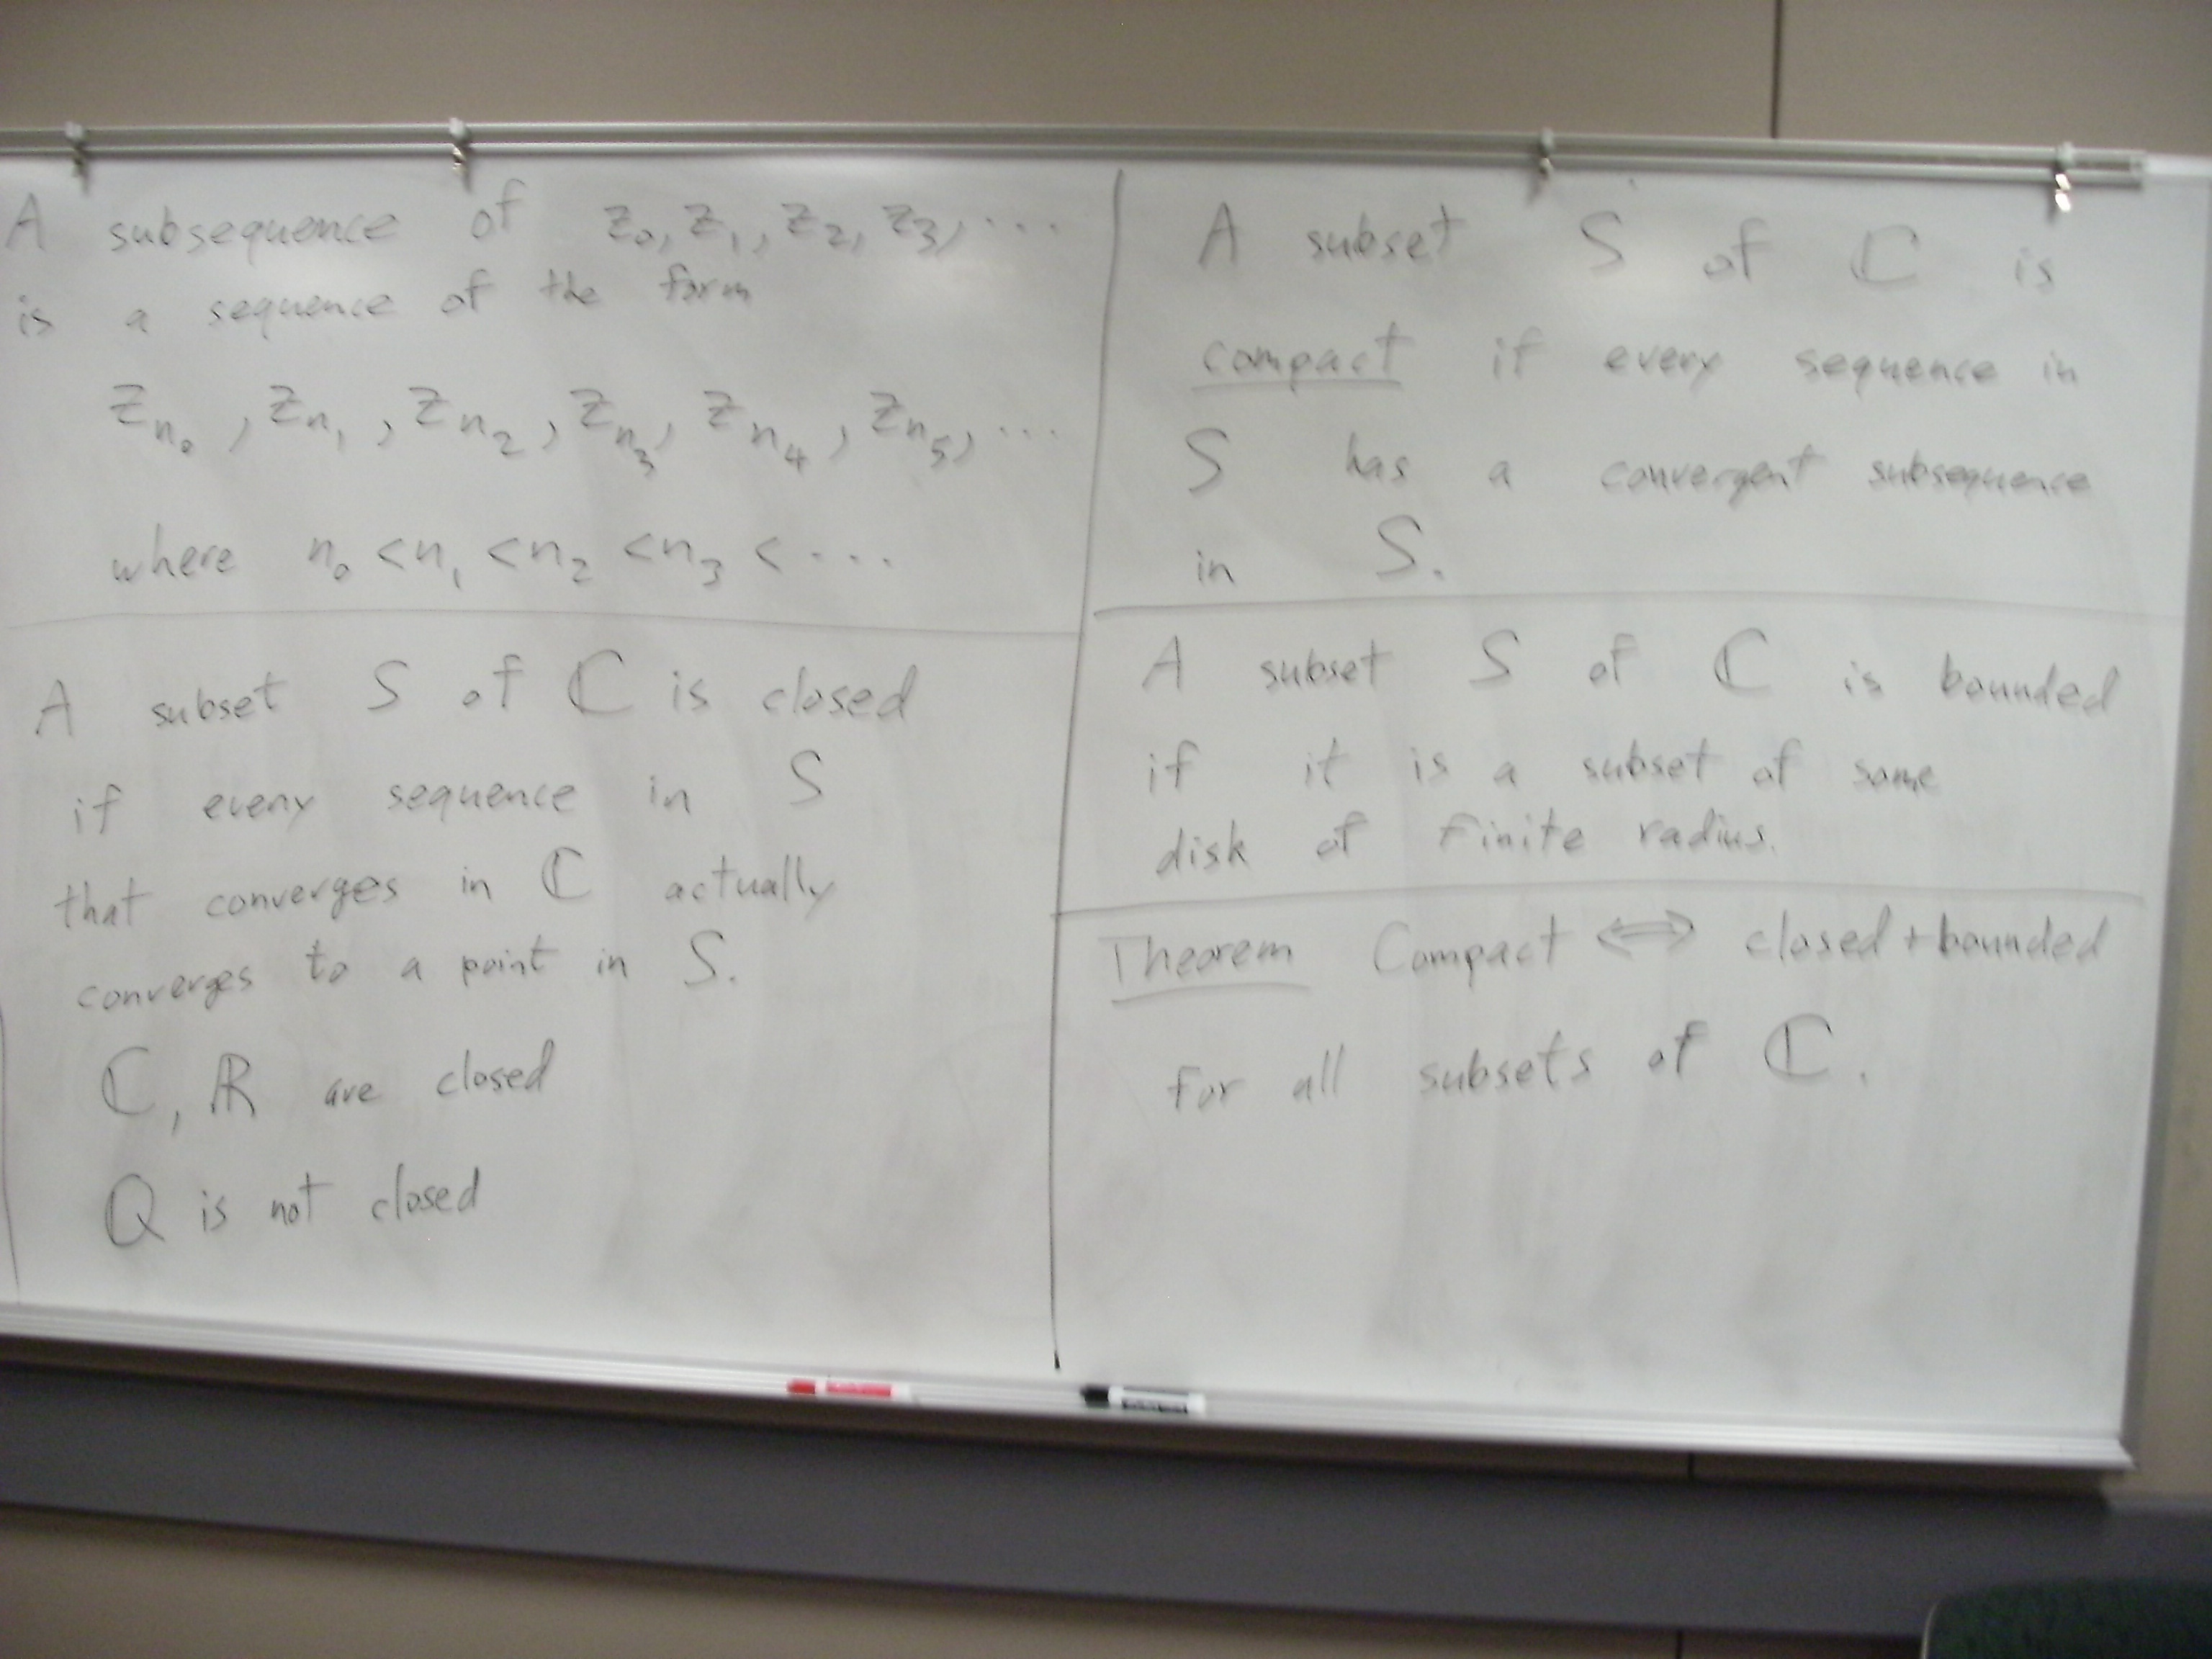 A subsequence of z₀, z₁, z₂, z₃, ...
is a sequence of the form
z_{n₀}, z_{n₁}, z_{n₂}, z_{n₃}, z_{n₄}, z_{n₅}, ...
where n₀ < n₁ < n₂ < n₃ < ...
A subset S of ℂ is closed
if every sequence in S
that converges in ℂ actually
converges to a point in S.
ℂ, ℝ are closed
Q is not closed
A subset S of ℂ is
compact if every sequence in
S has a convergent subsequence
in S.
A subset S of ℂ is bounded
if it is a subset of some
disk of finite radius.
Theorem Compact ⟺ closed + bounded
for all subsets of ℂ.